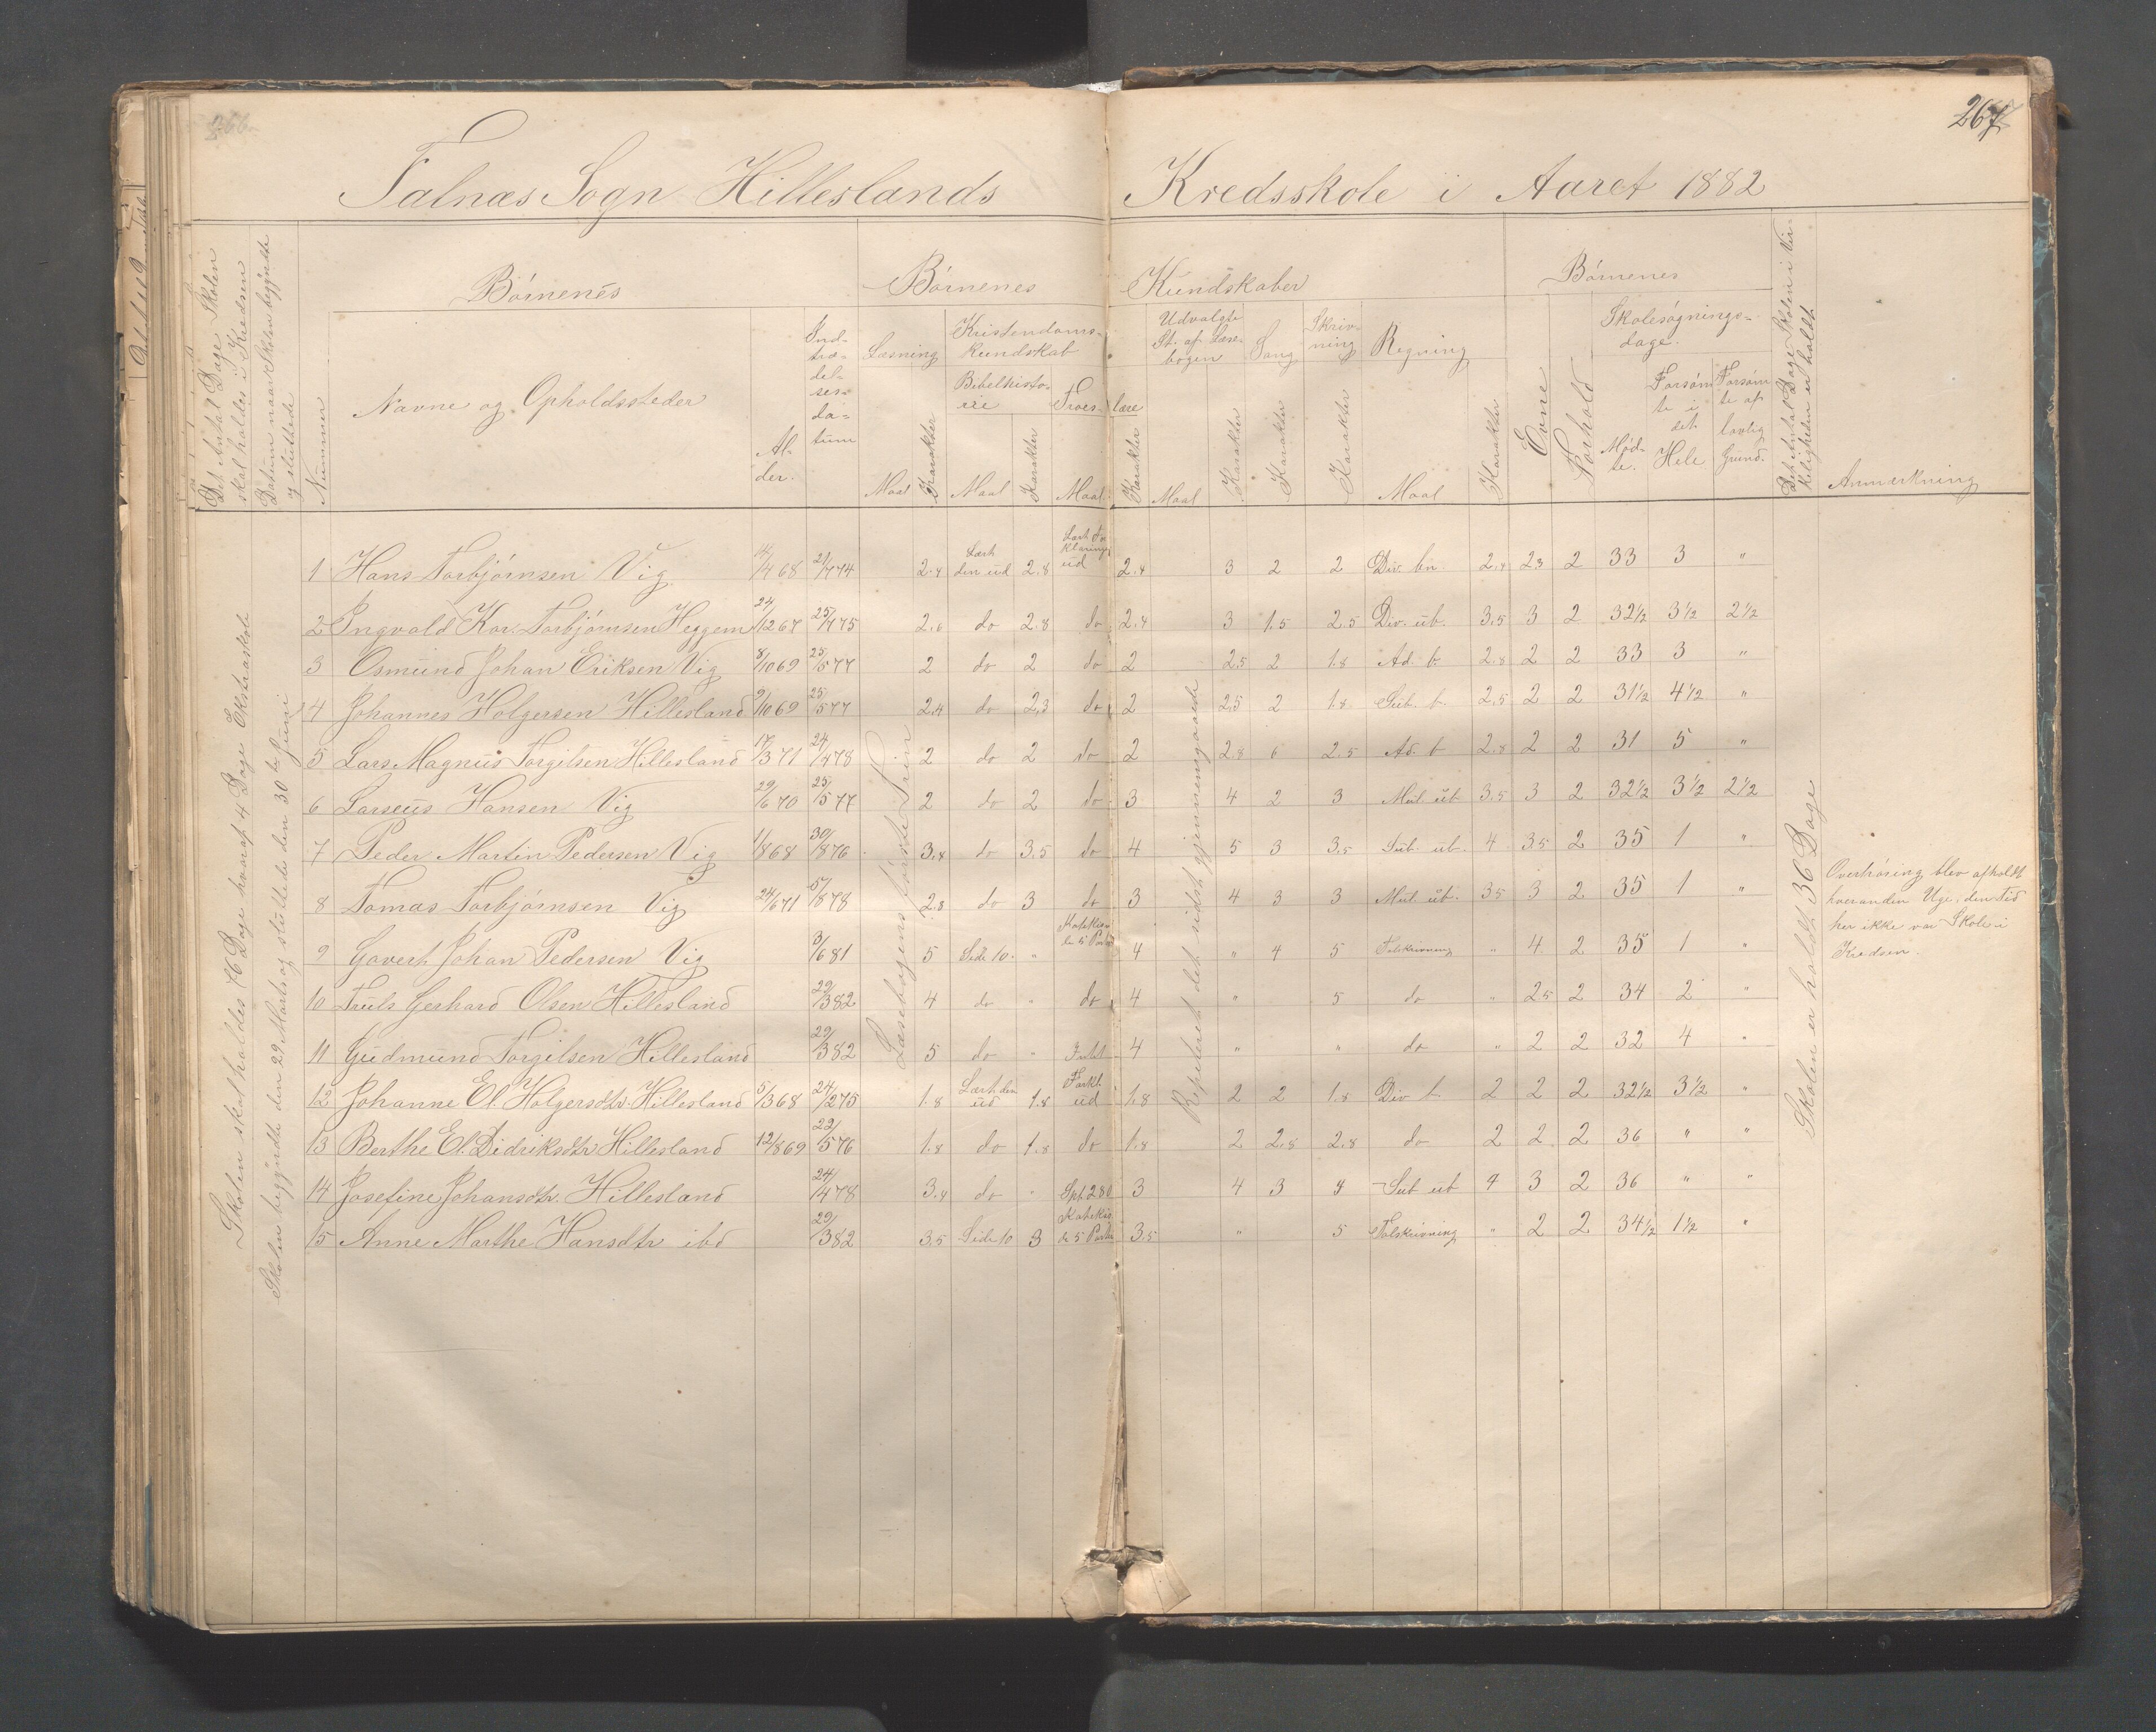 266
267
Falnæs Sogn Hilleslands Kredsskole i Aaret 1882
Det Antal Dage Skolen skal holdes i Kredsen
Datum naar Skolen begyndte og sluttede
Nummer
Børnenes
Navne og Opholdssteder
Alder.
Indtrædelsesdatum
Børnenes Kundskaber
Læsning
Maal
Karakter
Kristendomskundskab
Bibelhistorie
Maal
Karakter
Troeslære
Maal
Karakter
Udvalgte St. af Læsebogen
Maal
Karakter
Sang
Karakter
Skrivning
Karakter
Regning
Maal
Karakter
Børnenes
Evne
Forhold
Skolesøgningsdage.
Mødte.
Forsømte i det Hele
Forsømte af lovlig Grund.
Det Antal Dage Skolen i Virkeligheden er holdt
Anmærkning
Skolen skal holdes 76 Dage hvoraf 4 Dage Ekstraskole
Skolen begyndte den 29 Marts og sluttede den 30te Juni
Læsebogens første Trin
Repeteret det sidst gjennemgaaede
Skolen er holdt 36 Dage
1 Hans Torbjørnsen Vig 14/4 68 21/4 74 2.4 Lært den ud 2.8 Lært Forklaringen ud 2.4 3 2 2 Div. bn. 2.4 2.3 2 33 3 "
2 Ingvald Kor. Torbjørnsen Heggem 24/12 67 25/4 75 2.6 do 2.8 do 2.4 3 1.5 2.5 Div. ub. 3.5 3 2 32½ 3½ 2½
3 Osmund Johan Eriksen Vig 8/10 69 25/5 77 2 do 2 do 2 2.5 2 1.8 Ad. b. 2.8 2 2 33 3 "
4 Johannes Holgersen Hillesland 9/10 69 25/5 77 2.4 do 2.3 do 2 2.5 2 1.8 Sub. b. 2.5 2 2 31½ 4½ "
5 Lars Magnus Torgilsen Hillesland 17/3 71 24/4 78 2 do 2 do 2 2.8 6 2.5 Ad. b 2.8 2 2 31 5 "
6 Larseus Hansen Vig 29/6 70 25/5 77 2 do 2 do 3 4 2 3 Mul ub 3.5 3 2 32½ 3½ 2½
7 Peder Martin Pedersen Vig 1/8 68 30/8 76 3.4 do 3.5 do 4 5 3 3.5 Sub. ub. 4 3.5 2 35 1 "
8 Tomas Torbjørnsen Vig 24/6 71 5/8 78 2.8 do 3 do 3 4 3 3 Mul. ub. 3.5 3 2 35 1 "
9 Govert Johan Pedersen Vig 3/6 81 5 Side 10. " Katekis de 5 Parter 4 " 4 5 Talskrivning " 4 2 35 1 "
10 Truls Gerhard Olsen Hillesland 29/3 82 4 do " do 4 " 5 do " 2.5 2 34 2 "
11 Gudmund Torgilsen Hillesland 29/3 82 5 do " 4 " " do " 2 2 32 4 "
12 Johanne El. Holgersdtr. Hillesland 5/3 68 24/2 75 1.8 Lært den ud 1.8 Forkl. ud 1.8 2 2 1.8 Div b. 2 2 2 32½ 3½ "
13 Berthe El. Didriksdtr Hillesland 12/8 69 22/5 76 1.8 do 1.8 do 1.8 2 2.8 2.8 do 2 2 2 36 " "
14 Josefine Johansdtr. Hillesland 24/4 78 3.4 do " Sp. 280 3 4 3 4 Sub ub 4 3 2 36 " "
15 Anne Marthe Hansdtr ibd 29/3 82 3.5 Side 10 3 Katekis de 5 Parter 3.5 " 5 Talskrivning " 2 2 34½ 1½ "
Overhøring blev afholdt
hveranden Uge, den Tid
her ikke var Skole i
Kredsen.